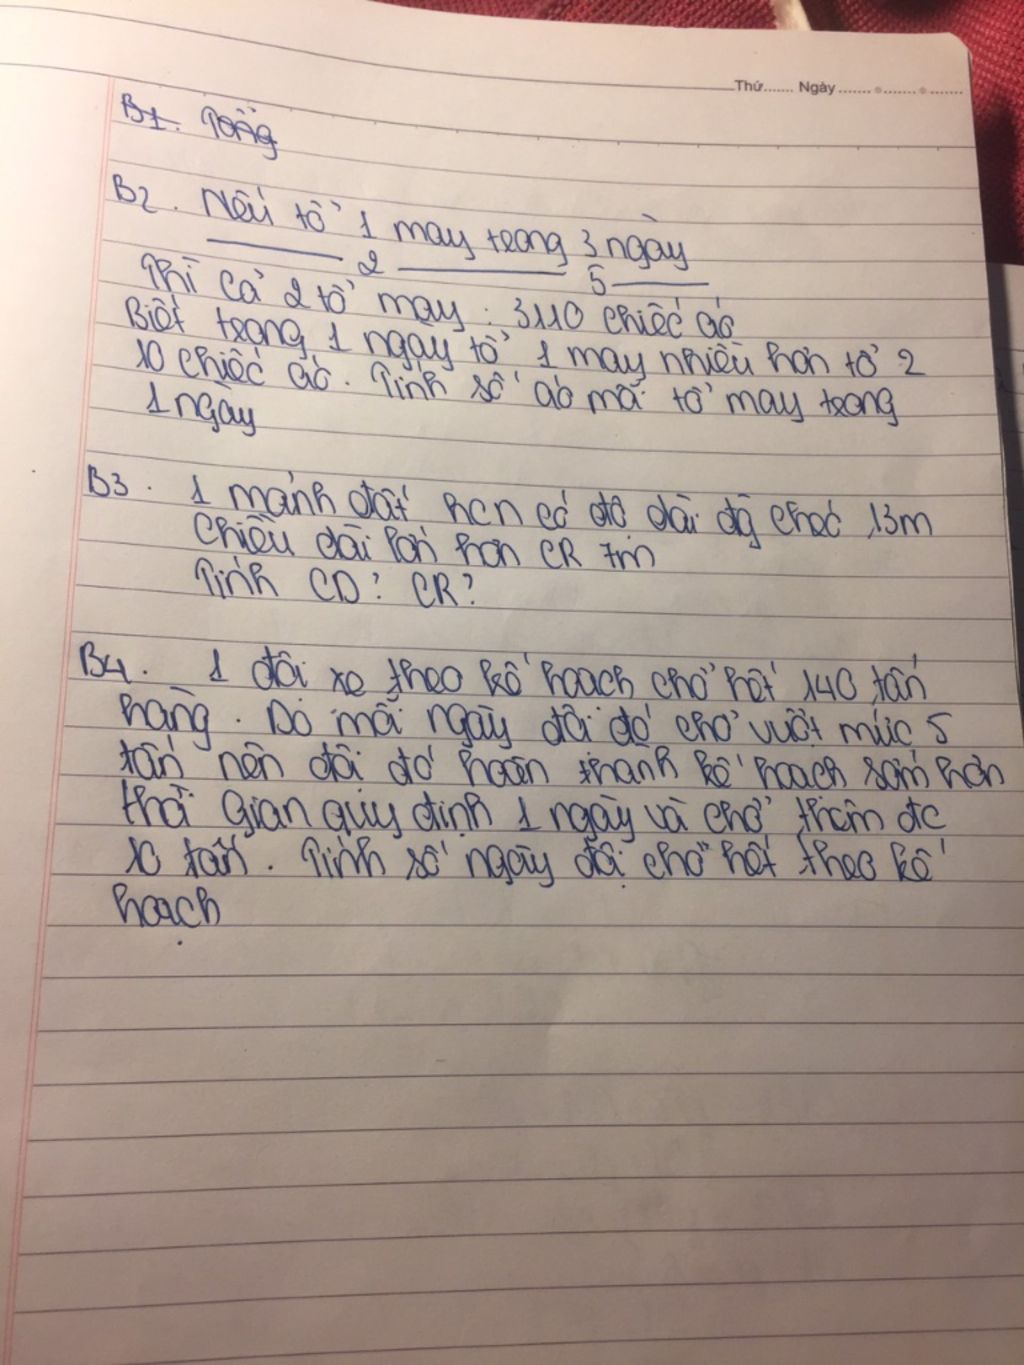 Thứ....... Ngày.......
B1. Tổng
B2. Nếu tổ 1 may trong 3 ngày
2 5
Thì cả 2 tổ may : 3110 chiếc áo
Biết trong 1 ngày tổ 1 may nhiều hơn tổ 2
10 chiếc áo. Tính số áo mỗi tổ may trong
1 ngày
B3. 1 mảnh đất hcn có độ dài đg chéo 13m
Chiều dài lớn hơn CR 7m
Tính CD? CR?
B4. 1 đội xe theo kế hoạch chở hết 140 tấn
hàng. Do mỗi ngày đội đó chở vượt mức 5
tấn nên đội đó hoàn thành kế hoạch sớm hơn
thời gian quy định 1 ngày và chở thêm đc
10 tấn. Tính số ngày đội chở hết theo kế
hoạch